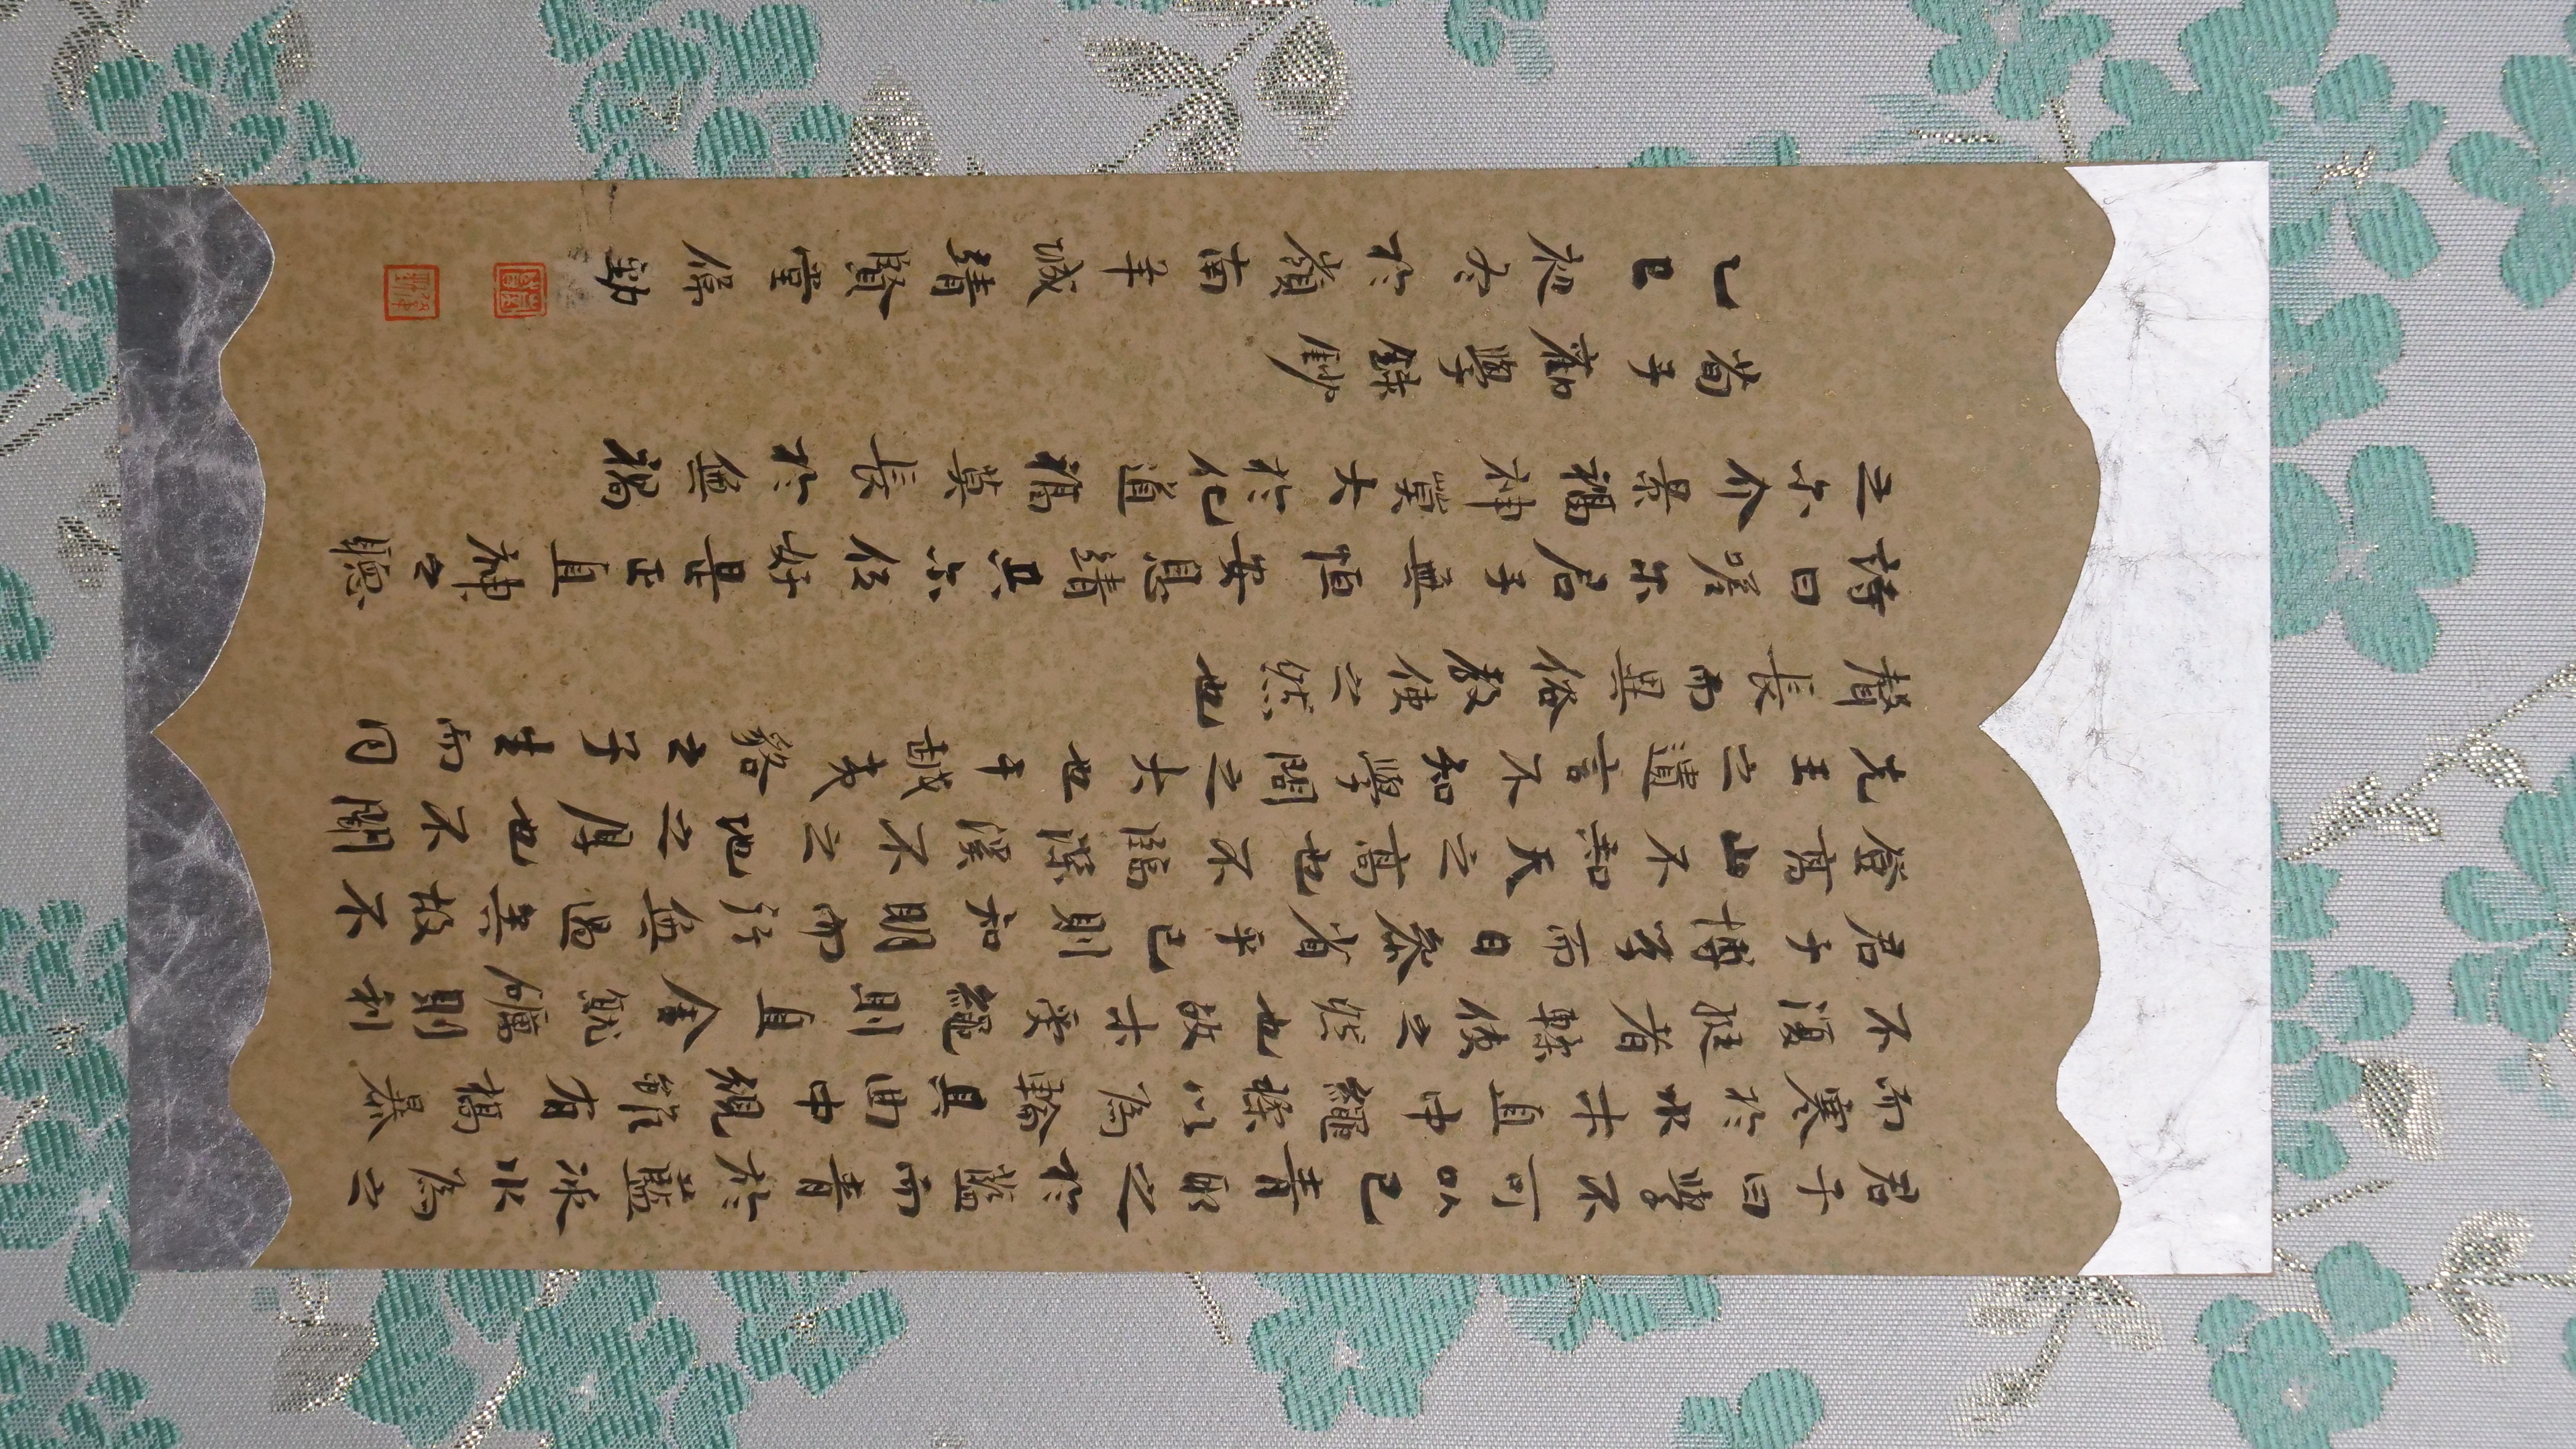 君子曰學不可以已青取之於藍而青於藍冰水為之
而寒於水木直中繩輮以為輪其曲中規雖有槁暴
不復挺者輮使之然也故木受繩則直金就礪則利
君子博學而日參省乎己則知明而行無過矣故不
登高山不知天之高也不臨深溪不之地之厚也不聞
先王之遺言不知學問之大也干越夷貉之子生而同
聲長而異俗教使之然也
詩曰嗟尔君子無恒安息靖共尔位好是正直神之聽
之尔介景福神莫大於化道福莫長於無禍
荀子勸學錄鈔
乙巳初冬於嶺南羊城靖賢堂偉勤